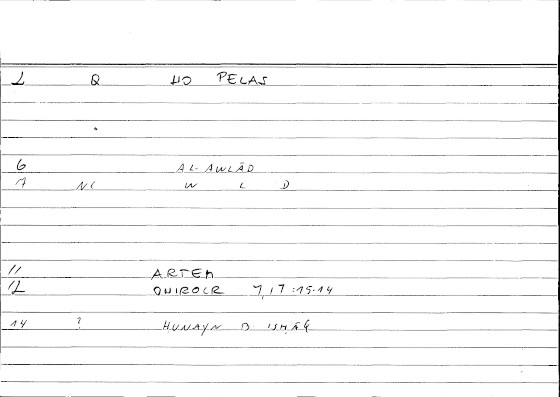 2 Q HO PELAS
6 AL-AWLĀD
7 NC W L D
11 ARTEM
12 ONIROCR 7,17:15.14
14 ? HUNAYN B ISḤĀQ